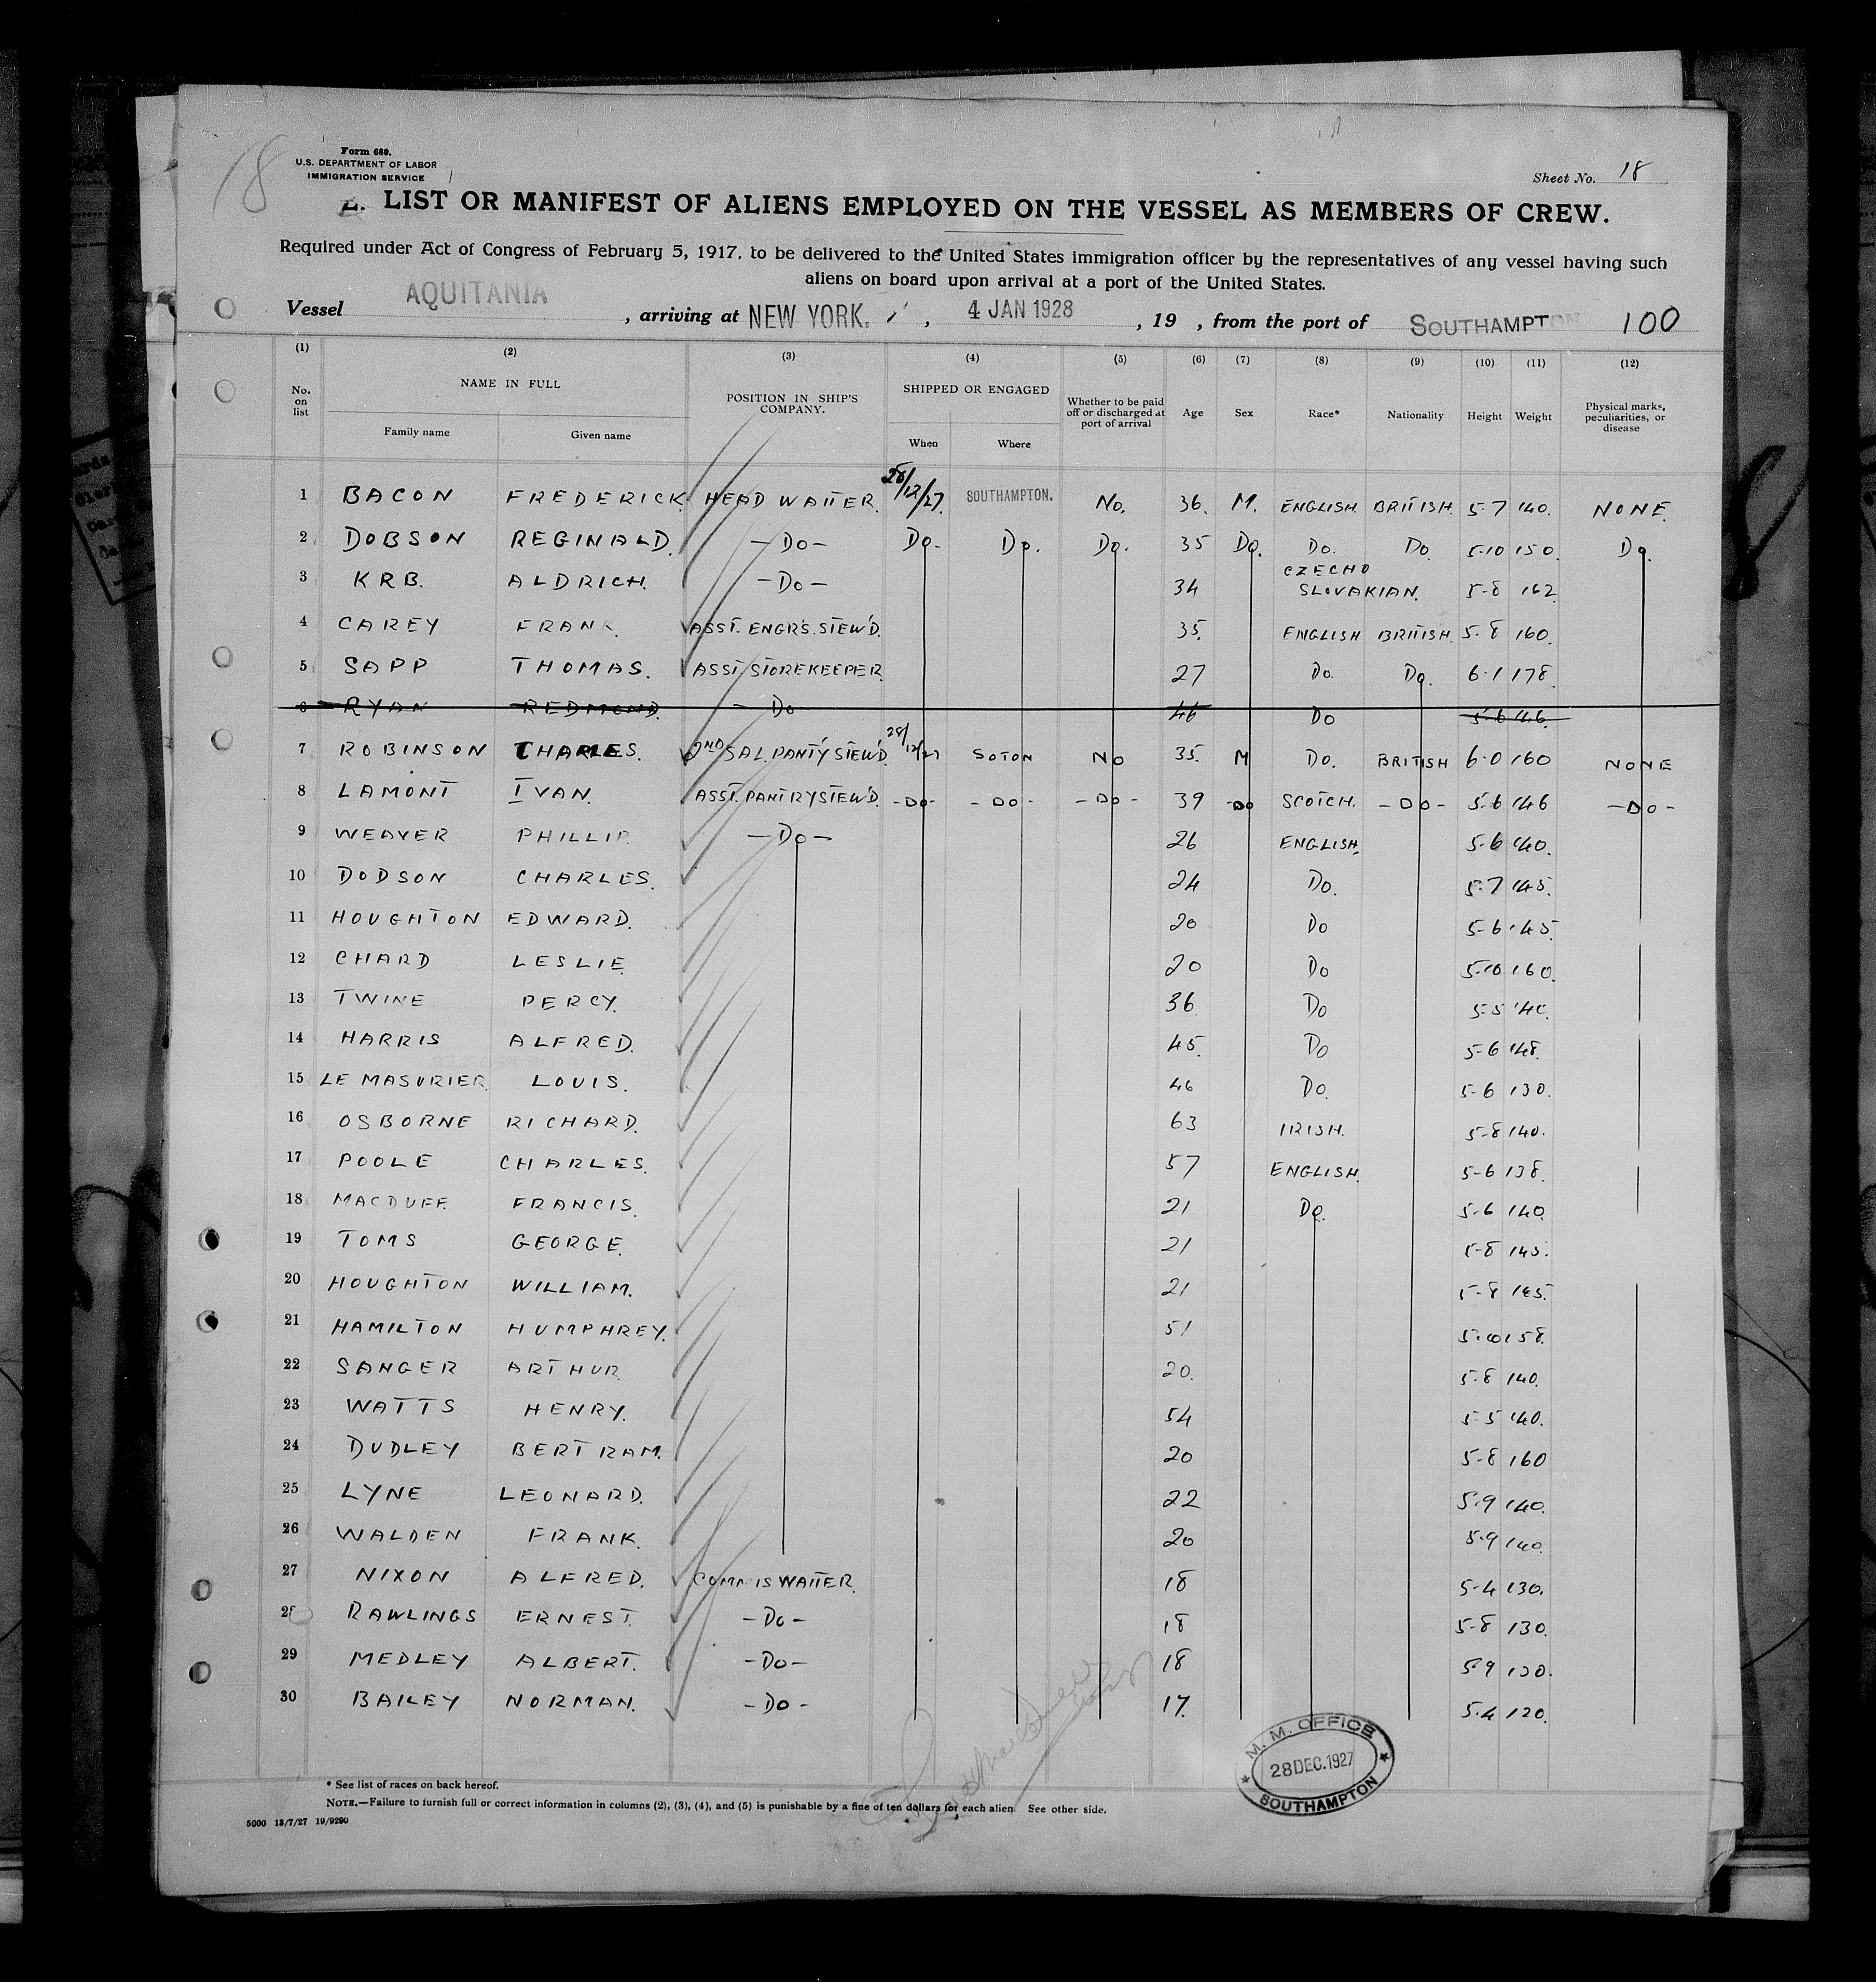 18
Form 680.
U.S. DEPARTMENT OF LABOR
IMMIGRATION SERVICE
Sheet No. 18
LIST OR MANIFEST OF ALIENS EMPLOYED ON THE VESSEL AS MEMBERS OF CREW.
Required under Act of Congress of February 5, 1917, to be delivered to the United States immigration officer by the representatives of any vessel having such
aliens on board upon arrival at a port of the United States.
Vessel AQUITANIA, arriving at NEW YORK. , 4 JAN 1928, 19 , from the port of SOUTHAMPTON 100
(1) (2) (3) (4) (5) (6) (7) (8) (9) (10) (11) (12)
No. on list NAME IN FULL POSITION IN SHIP'S COMPANY. SHIPPED OR ENGAGED Whether to be paid off or discharged at port of arrival Age Sex Race* Nationality Height Weight Physical marks, peculiarities, or disease
Family name Given name When Where
1 BACON FREDERICK HEAD WAITER. 28/12/27. SOUTHAMPTON. No. 36. M. ENGLISH BRITISH. 5-7 140. NONE.
2 DOBSON REGINALD. -Do- Do- Do. Do. 35 Do. Do. Do 5-10 150. Do.
3 KRB. ALDRICH. -Do- 34 CZECHO SLOVAKIAN. 5-8 162
4 CAREY FRANK. ASST. ENGRS. STEW'D. 35. ENGLISH BRITISH. 5-8 160.
5 SAPP THOMAS. ASST. STOREKEEPER. 27 Do. Do. 6-1 178.
6 RYAN REDMOND. - Do 46 Do 5-6 146.
7 ROBINSON CHARLES. 2ND SAL. PANT'Y STEW'D. 28/12/27 SOTON No 35. M Do. BRITISH 6-0 160 NONE
8 LAMONT IVAN. ASST. PANTRY STEW'D. -Do- -Do- -Do- 39 -Do SCOTCH. -Do- 5-6 146 -Do-
9 WEAVER PHILLIP. -Do- 26 ENGLISH. 5-6 140.
10 DODSON CHARLES. 24 Do. 5-7 145.
11 HOUGHTON EDWARD. 20 Do 5-6 145.
12 CHARD LESLIE 20 Do 5-10 160.
13 TWINE PERCY. 36 Do 5-5 140.
14 HARRIS ALFRED. 45. Do 5-6 148.
15 LE MASURIER. LOUIS. 46 Do. 5-6 130.
16 OSBORNE RICHARD. 63 IRISH. 5-8 140.
17 POOLE CHARLES. 57 ENGLISH. 5-6 138.
18 MACDUFF. FRANCIS. 21 Do. 5-6 140.
19 TOMS GEORGE. 21 5-8 145.
20 HOUGHTON WILLIAM. 21 5-8
21 HAMILTON HUMPHREY. 51 5-10 158.
22 SANGER ARTHUR. 20. 5-8 140.
23 WATTS HENRY. 54 5-5 140.
24 DUDLEY BERTRAM. 20 5-8 160
25 LYNE LEONARD. 22 5-9 140.
26 WALDEN FRANK. 20 5-9 140.
27 NIXON ALFRED. COMMIS WAITER. 18 5-4 130.
28 RAWLINGS ERNEST. -Do- 18 5-8 130.
29 MEDLEY ALBERT. -Do- 18 5-9 130.
30 BAILEY NORMAN. -Do- 17. 5-4 120.
M. M. OFFICE
28 DEC. 1927
SOUTHAMPTON
* See list of races on back hereof.
NOTE.—Failure to furnish full or correct information in columns (2), (3), (4), and (5) is punishable by a fine of ten dollars for each alien. See other side.
5000 13/7/27 19/9290